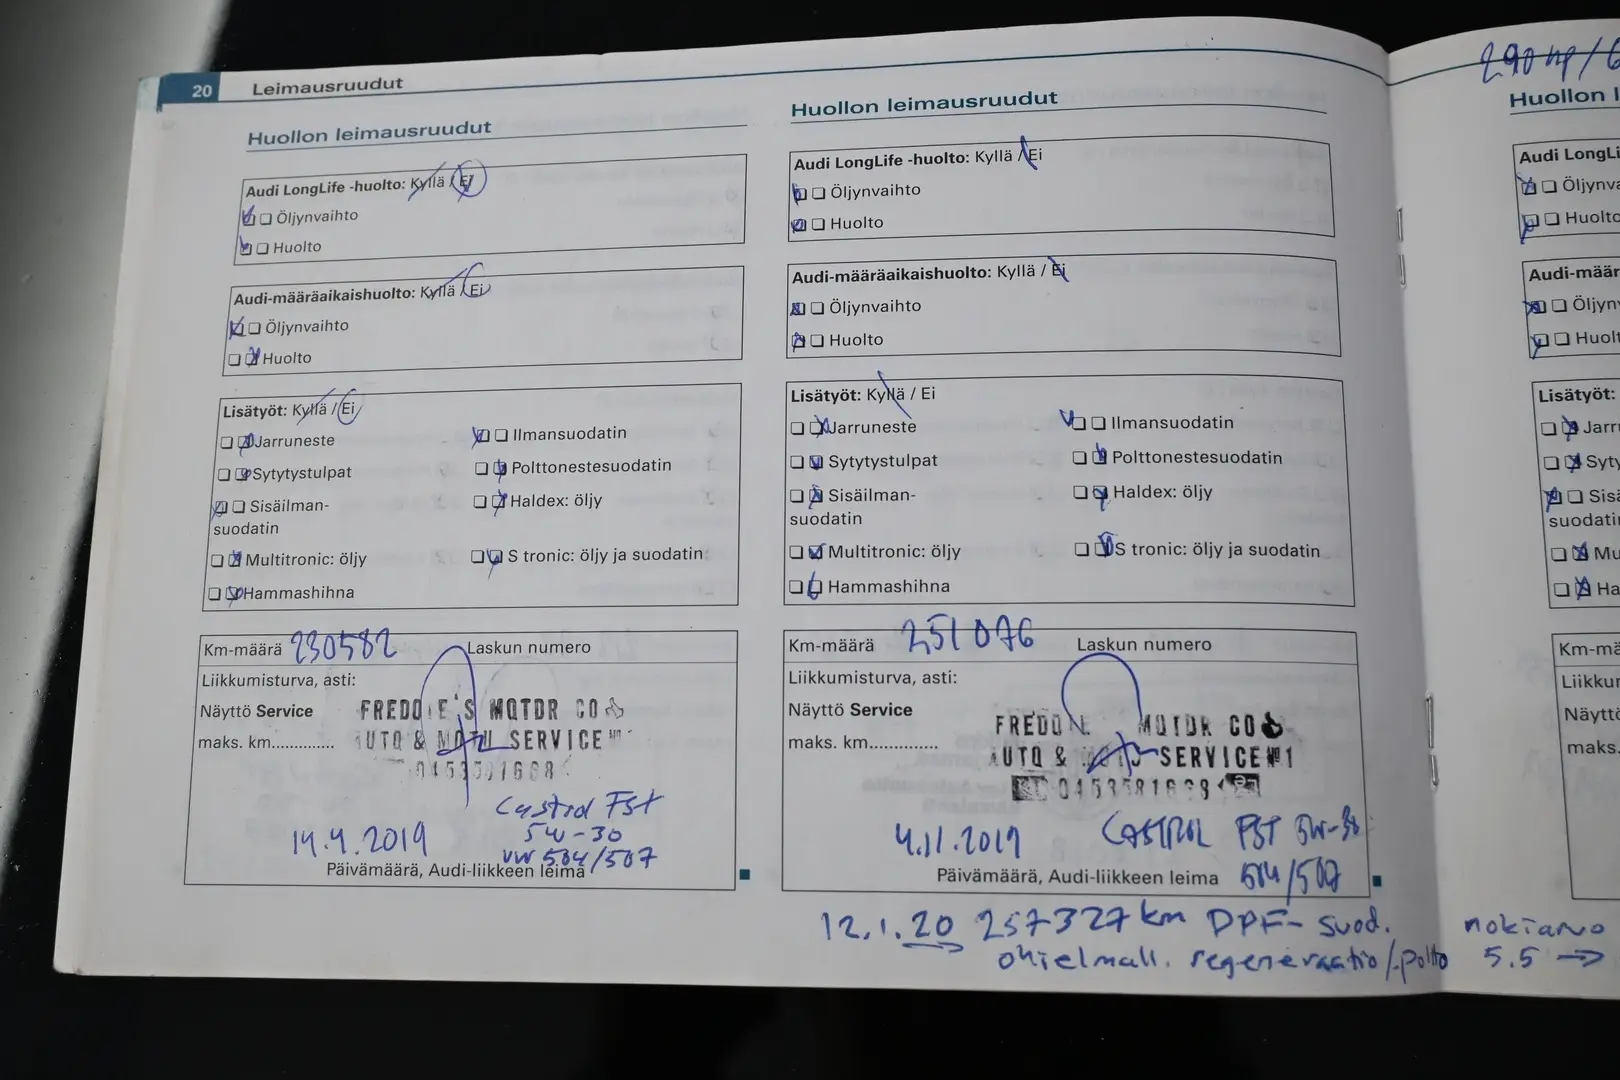 20 Leimausruudut
Huollon leimausruudut
Audi LongLife -huolto: Kyllä / Ei
Öljynvaihto
Huolto
Audi-määräaikaishuolto: Kyllä / Ei
Öljynvaihto
Huolto
Lisätyöt: Kyllä / Ei
Jarruneste
Ilmansuodatin
Sytytystulpat
Polttonestesuodatin
Sisäilman-
suodatin
Haldex: öljy
Multitronic: öljy
S tronic: öljy ja suodatin
Hammashihna
Km-määrä 230582 Laskun numero
Liikkumisturva, asti:
Näyttö Service
maks. km..............
FREDDIE'S MOTOR CO
AUTO & MOTO SERVICE №1
0453581668
Castrol FST
5W-30
VW 504/507
14.4.2019
Päivämäärä, Audi-liikkeen leima
Huollon leimausruudut
Audi LongLife -huolto: Kyllä / Ei
Öljynvaihto
Huolto
Audi-määräaikaishuolto: Kyllä / Ei
Öljynvaihto
Huolto
Lisätyöt: Kyllä / Ei
Jarruneste
Ilmansuodatin
Sytytystulpat
Polttonestesuodatin
Sisäilman-
suodatin
Haldex: öljy
Multitronic: öljy
S tronic: öljy ja suodatin
Hammashihna
Km-määrä 251076 Laskun numero
Liikkumisturva, asti:
Näyttö Service
maks. km..............
MOTOR CO
AUTO & MOTO SERVICE №1
4.11.2019 CASTROL FST 5W-30
504/507
Päivämäärä, Audi-liikkeen leima
12.1.20 257327 km DPF-suod. nokiarvo
ohjelmall. regeneraatio/-poltto 5.5 →
290 hp/6
Huollon l
Audi LongLi
Öljynva
Huolto
Audi-määr
Öljyn
Huolt
Lisätyöt:
Jarr
Syty
Sisä
suodati
Mu
Ha
Km-mä
Liikkur
Näyttö
maks.